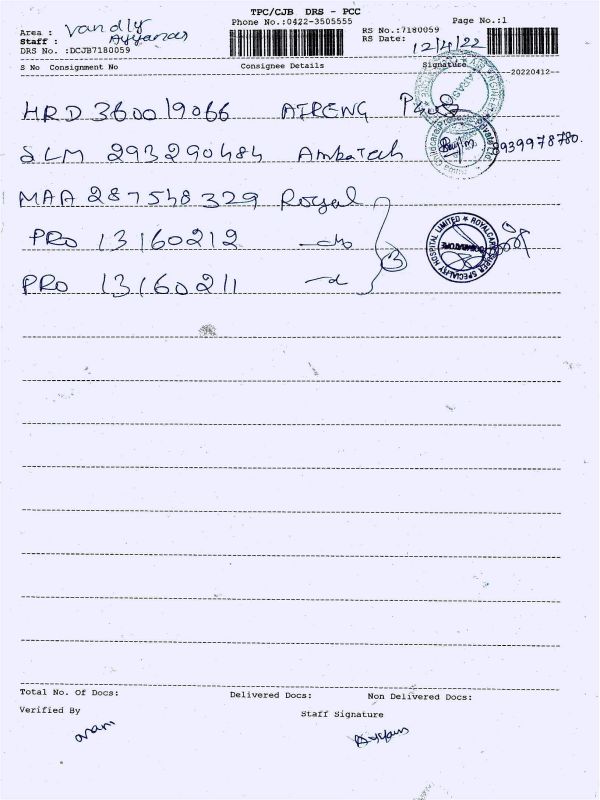 TPC/CJB DRS - PCC
Phone No.:0422-3505555 Page No.:1
Area : Vandly
Staff : Ayyanar
DRS No. :DCJB7180059
RS No.:7180059
RS Date: 12/4/22
S No Consignment No Consignee Details Signature
--20220412--
HRD 360019066 AIRENG
SLM 293290484 AmbaTech 8939978780.
MAA 287548329 Royal
PRO 13160212 -do
PRO 13160211 -d
3
ROYALCARE SUPER SPECIALITY HOSPITAL LIMITED
Total No. Of Docs: Delivered Docs: Non Delivered Docs:
Verified By Staff Signature